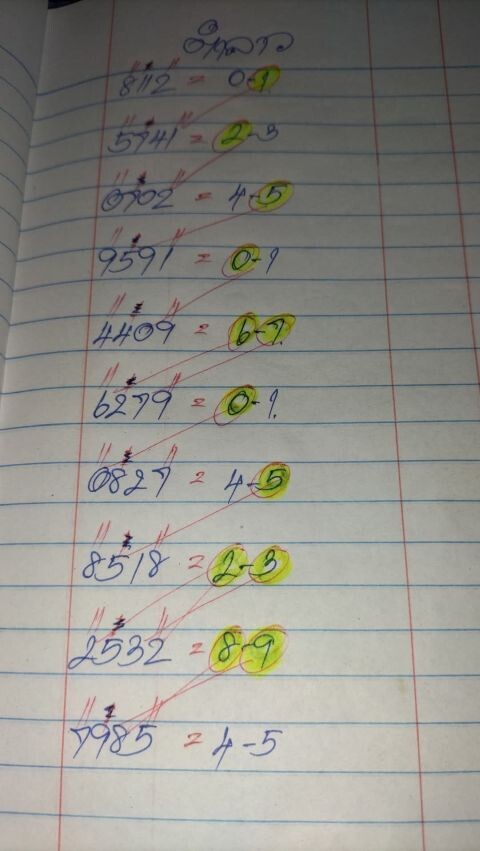 ฮานอย
8112 = 0-1
5741 = 2-3
0702 = 4-5
9591 = 0-1
4409 = 6-7
6279 = 0-1
0827 = 4-5
8518 = 2-3
2532 = 8-9
7985 = 4-5